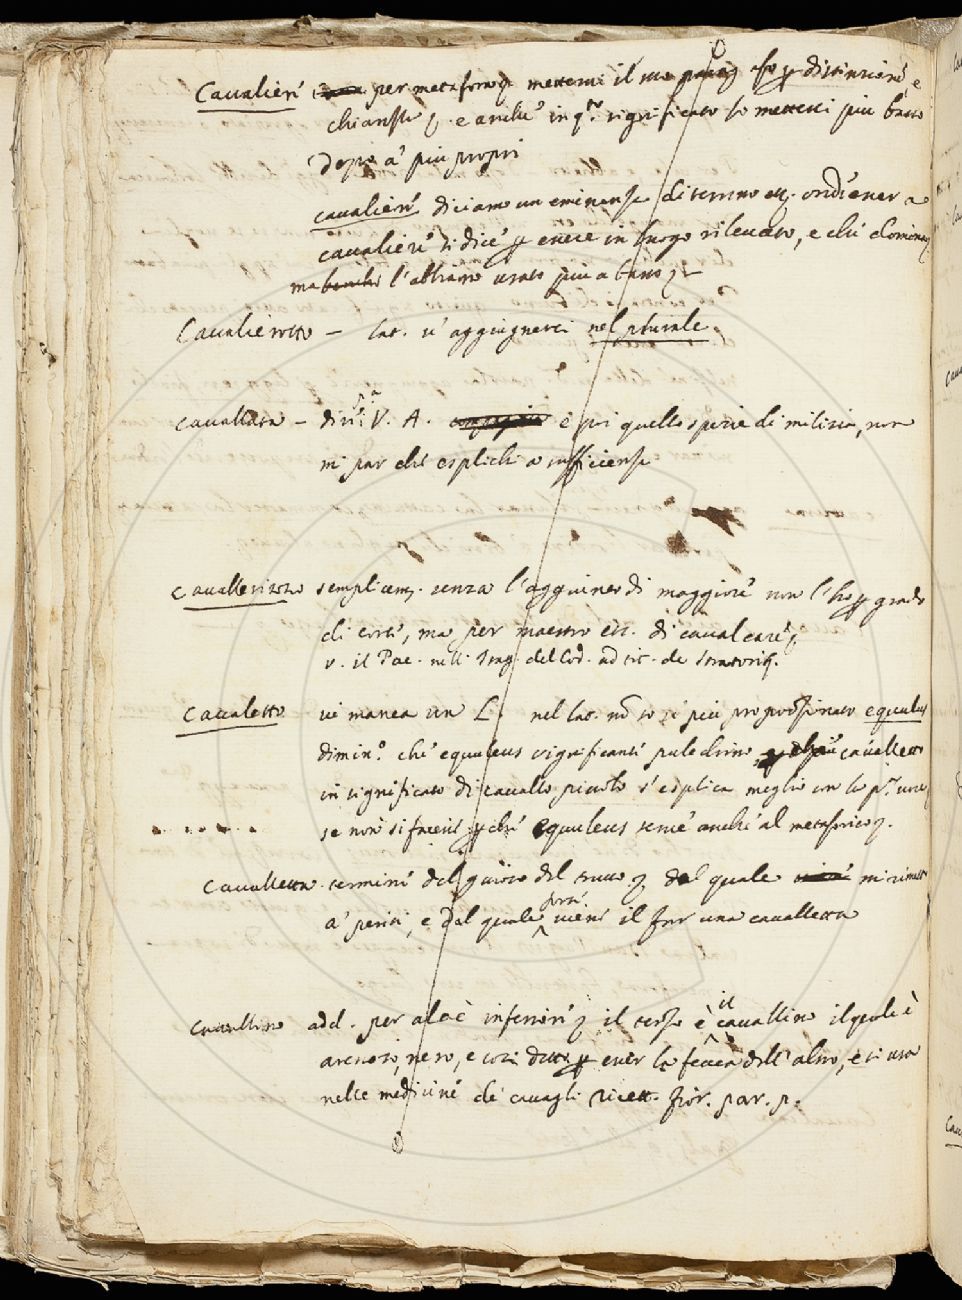 Cavalieri per metafora metterei il suo distinzione e
chiarezza e anche in q.to significato lo metterei più basso
dopo a' più propri
cavalieri diciamo un eminenza di terreno etc. ond'esser a
cavaliere si dice esser in luogo rilevato, e che domina
ma l'abbiamo usato più a basso
Cavalierotto – lat. v'aggiugnerei nel plurale
cavallata – V. A. è poi quella spezie di milizia, non
mi par che esplichi a sufficienza
cavallerizzo semplicem. senza l'aggiunto di maggiore non l'ho grado
di corte, ma per maestro etc. di cavalcare
v. il Pac. nell. del Cod. ad tit. de
Cavaletto vi manca un L. nel lat. nō so più proporzionato equulus
dimin.o che equuleus significante puledrino cavalletto
in significato di cavallo piccolo s'esplica meglio con la p.a voce
se non si facesse equuleus serve anche al metaforico.
Cavalletta. termine del giuoco del del quale mi rimetto
a' periti, e dal quale forse viene il far una cavalletta
Cavallino add. per aloè inferiore il terzo è il cavallino il quale è
arenoso, nero, e così detto esser la feccia dell'altro, e si usa
nelle medicine de' cavagli Ricett. Fior. par. p.